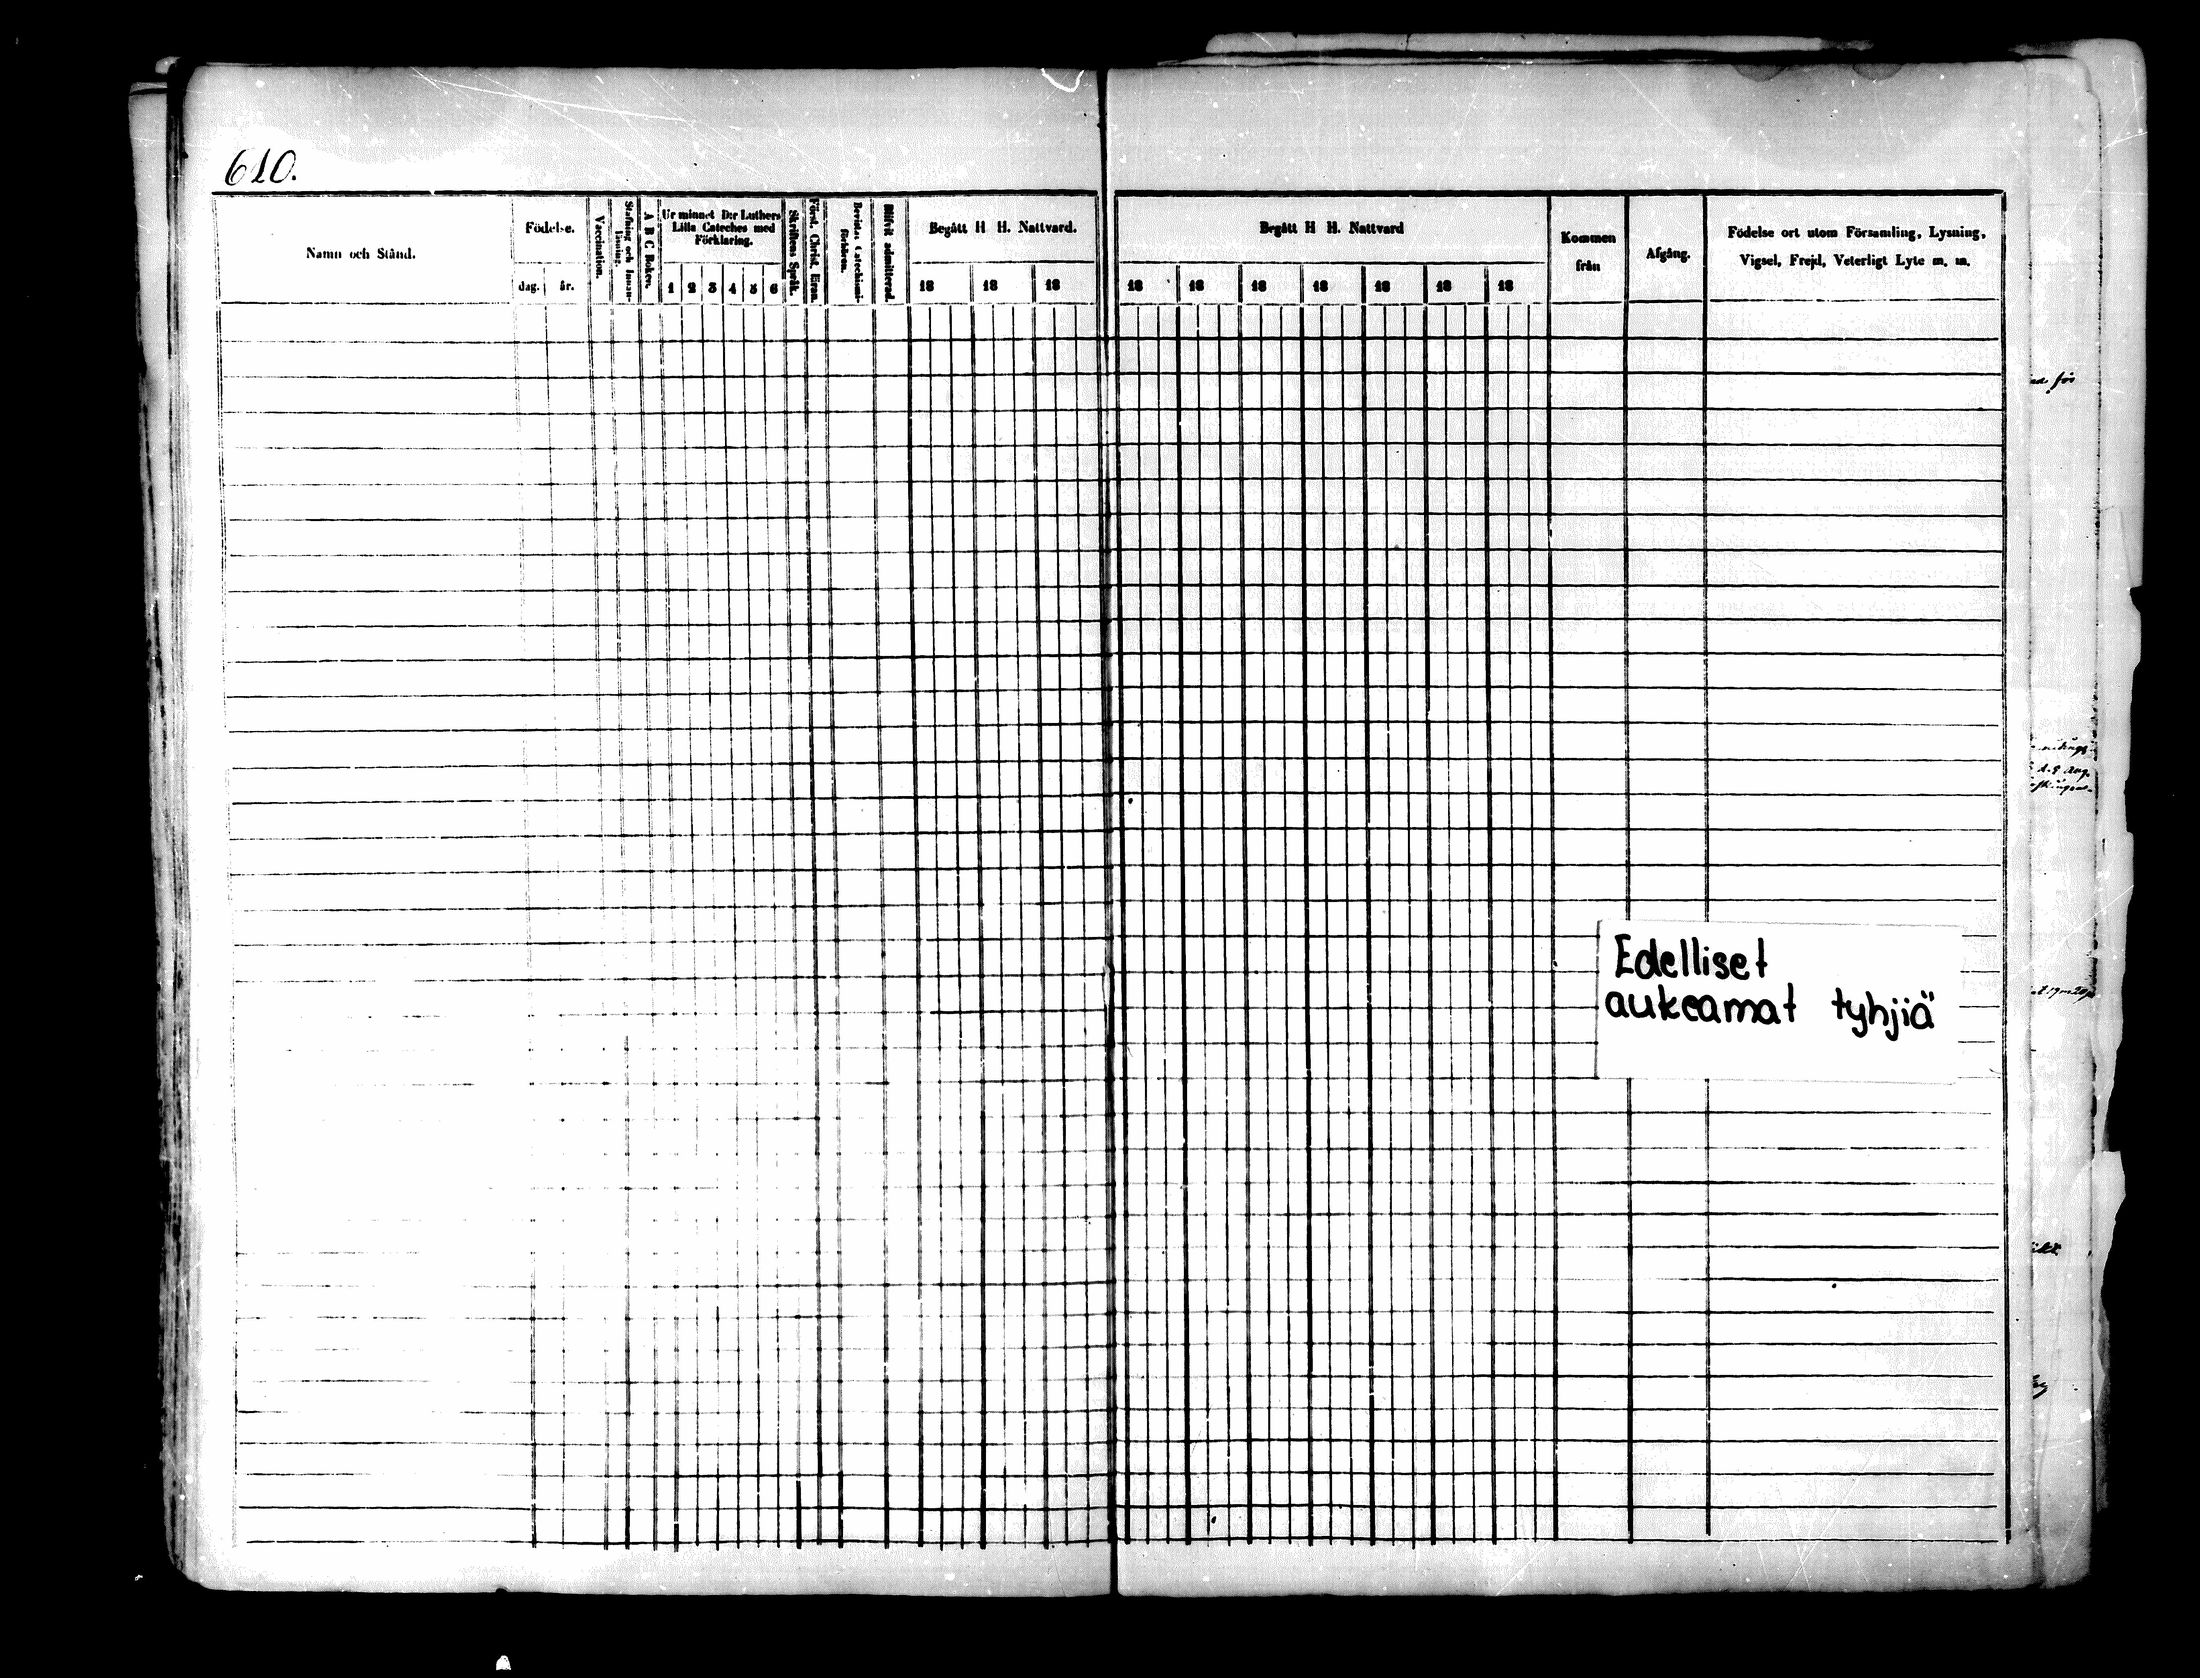 610.
Namn och Stånd.
Födelse.
dag.
år.
Vaccination.
Stafning och Innan-
läsning.
A B C Boken.
Ur minnet D:r Luthers
Lilla Cateches med
Förklaring.
1 2 3 4 5 6
Skriftens Språk.
Först. Christ.
Bevistat Catechismi-
förhören.
Blifvit admitterad.
Begått H H. Nattvard.
18 18 18
Begått H H. Nattvard
18 18 18 18 18 18 18
Kommen
från
Afgång.
Födelse ort utom Församling, Lysning,
Vigsel, Frejd, Veterligt Lyte m. m.
Edelliset
aukeamat tyhjiä